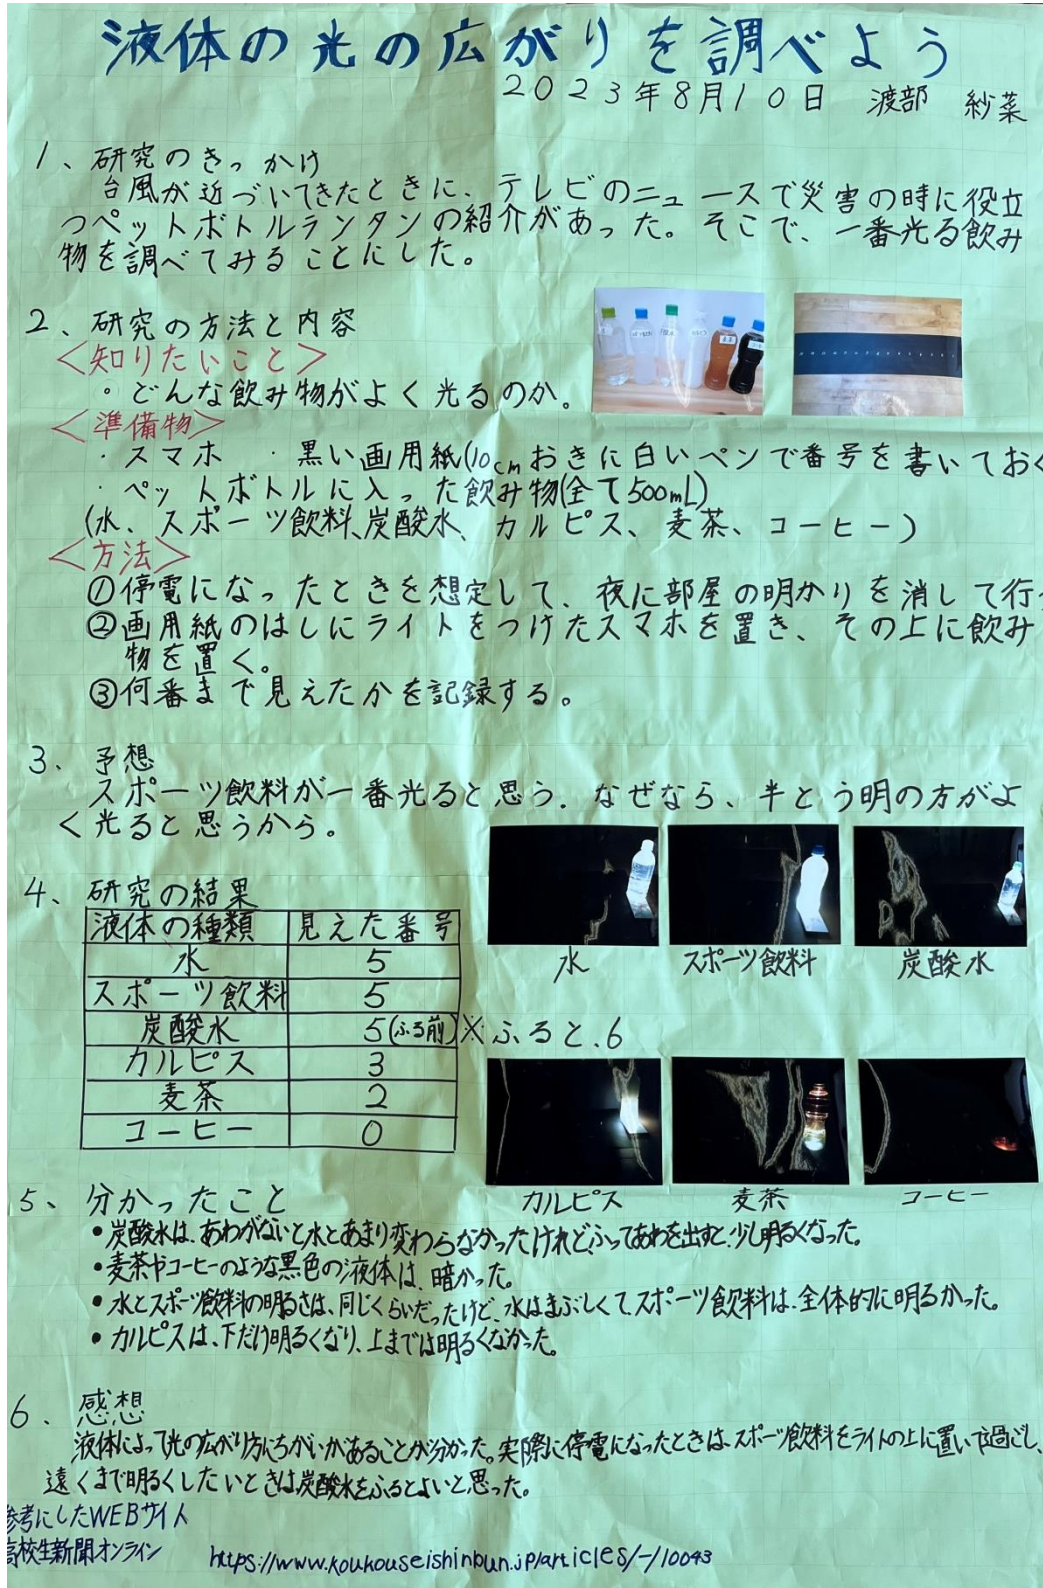 液体の光の広がりを調べよう
2023年8月10日 渡部 紗菜
1、研究のきっかけ
台風が近づいてきたときに、テレビのニュースで災害の時に役立
つペットボトルランタンの紹介があった。そこで、一番光る飲み
物を調べてみることにした。
2、研究の方法と内容
<知りたいこと>
・どんな飲み物がよく光るのか。
<準備物>
・スマホ ・黒い画用紙(10cmおきに白いペンで番号を書いておく
・ペットボトルに入った飲み物(全て500mL)
(水、スポーツ飲料、炭酸水、カルピス、麦茶、コーヒー)
<方法>
①停電になったときを想定して、夜に部屋の明かりを消して行う
②画用紙のはしにライトをつけたスマホを置き、その上に飲み
物を置く。
③何番まで見えたかを記録する。
3、予想
スポーツ飲料が一番光ると思う。なぜなら、半とう明の方がよ
く光ると思うから。
4、研究の結果
液体の種類 見えた番号
水 5
スポーツ飲料 5
炭酸水 5(ふる前)※ふると、6
カルピス 3
麦茶 2
コーヒー 0
水 スポーツ飲料 炭酸水
カルピス 麦茶 コーヒー
5、分かったこと
・炭酸水は、あわがないと水とあまり変わらなかったけれど、ふってあわを出すと、少し明るくなった。
・麦茶やコーヒーのような黒色の液体は、暗かった。
・水とスポーツ飲料の明るさは、同じくらいだったけど、水はまぶしくて、スポーツ飲料は、全体的に明るかった。
・カルピスは、下だけ明るくなり、上までは明るくなかった。
6、感想
液体によって光の広がり方にちがいがあることが分かった。実際に停電になったときは、スポーツ飲料をライトの上に置いて過ごし、
遠くまで明るくしたいときは炭酸水をふるとよいと思った。
参考にしたWEBサイト
高校生新聞オンライン https://www.koukouseishinbun.jp/articles/-/10043